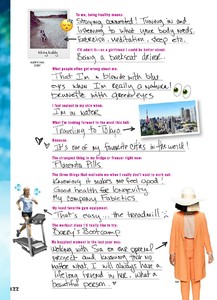 To me, being healthy means:
Staying committed! Tuning in and
listening to what your body needs.
Exercise, meditation, sleep etc.
I'd admit it—as a girlfriend I could be better about:
Being a backseat driver.
What people often get wrong about me:
That I'm a blonde with blue
eyes when I'm really a natural
brunette with green eyes
I feel sexiest in my skin when:
I'm in water
What I'm looking forward to most this fall:
Traveling to Tokyo
Because:
It's one of my favorite cities in the world!
The strangest thing in my fridge or freezer right now:
Placenta Pills
The three things that motivate me when I really don't want to work out:
Knowing it makes me feel good!
Good health for longevity
My company Fabletics
My least favorite gym equipment:
That's easy... the treadmill
The workout class I'd really like to try:
Barry's Bootcamp
My happiest moment in the last year was:
Working with Sia on our special
project and knowing that no
matter what, I will always have a
lifelong friend in her. what a
beautiful person.
122